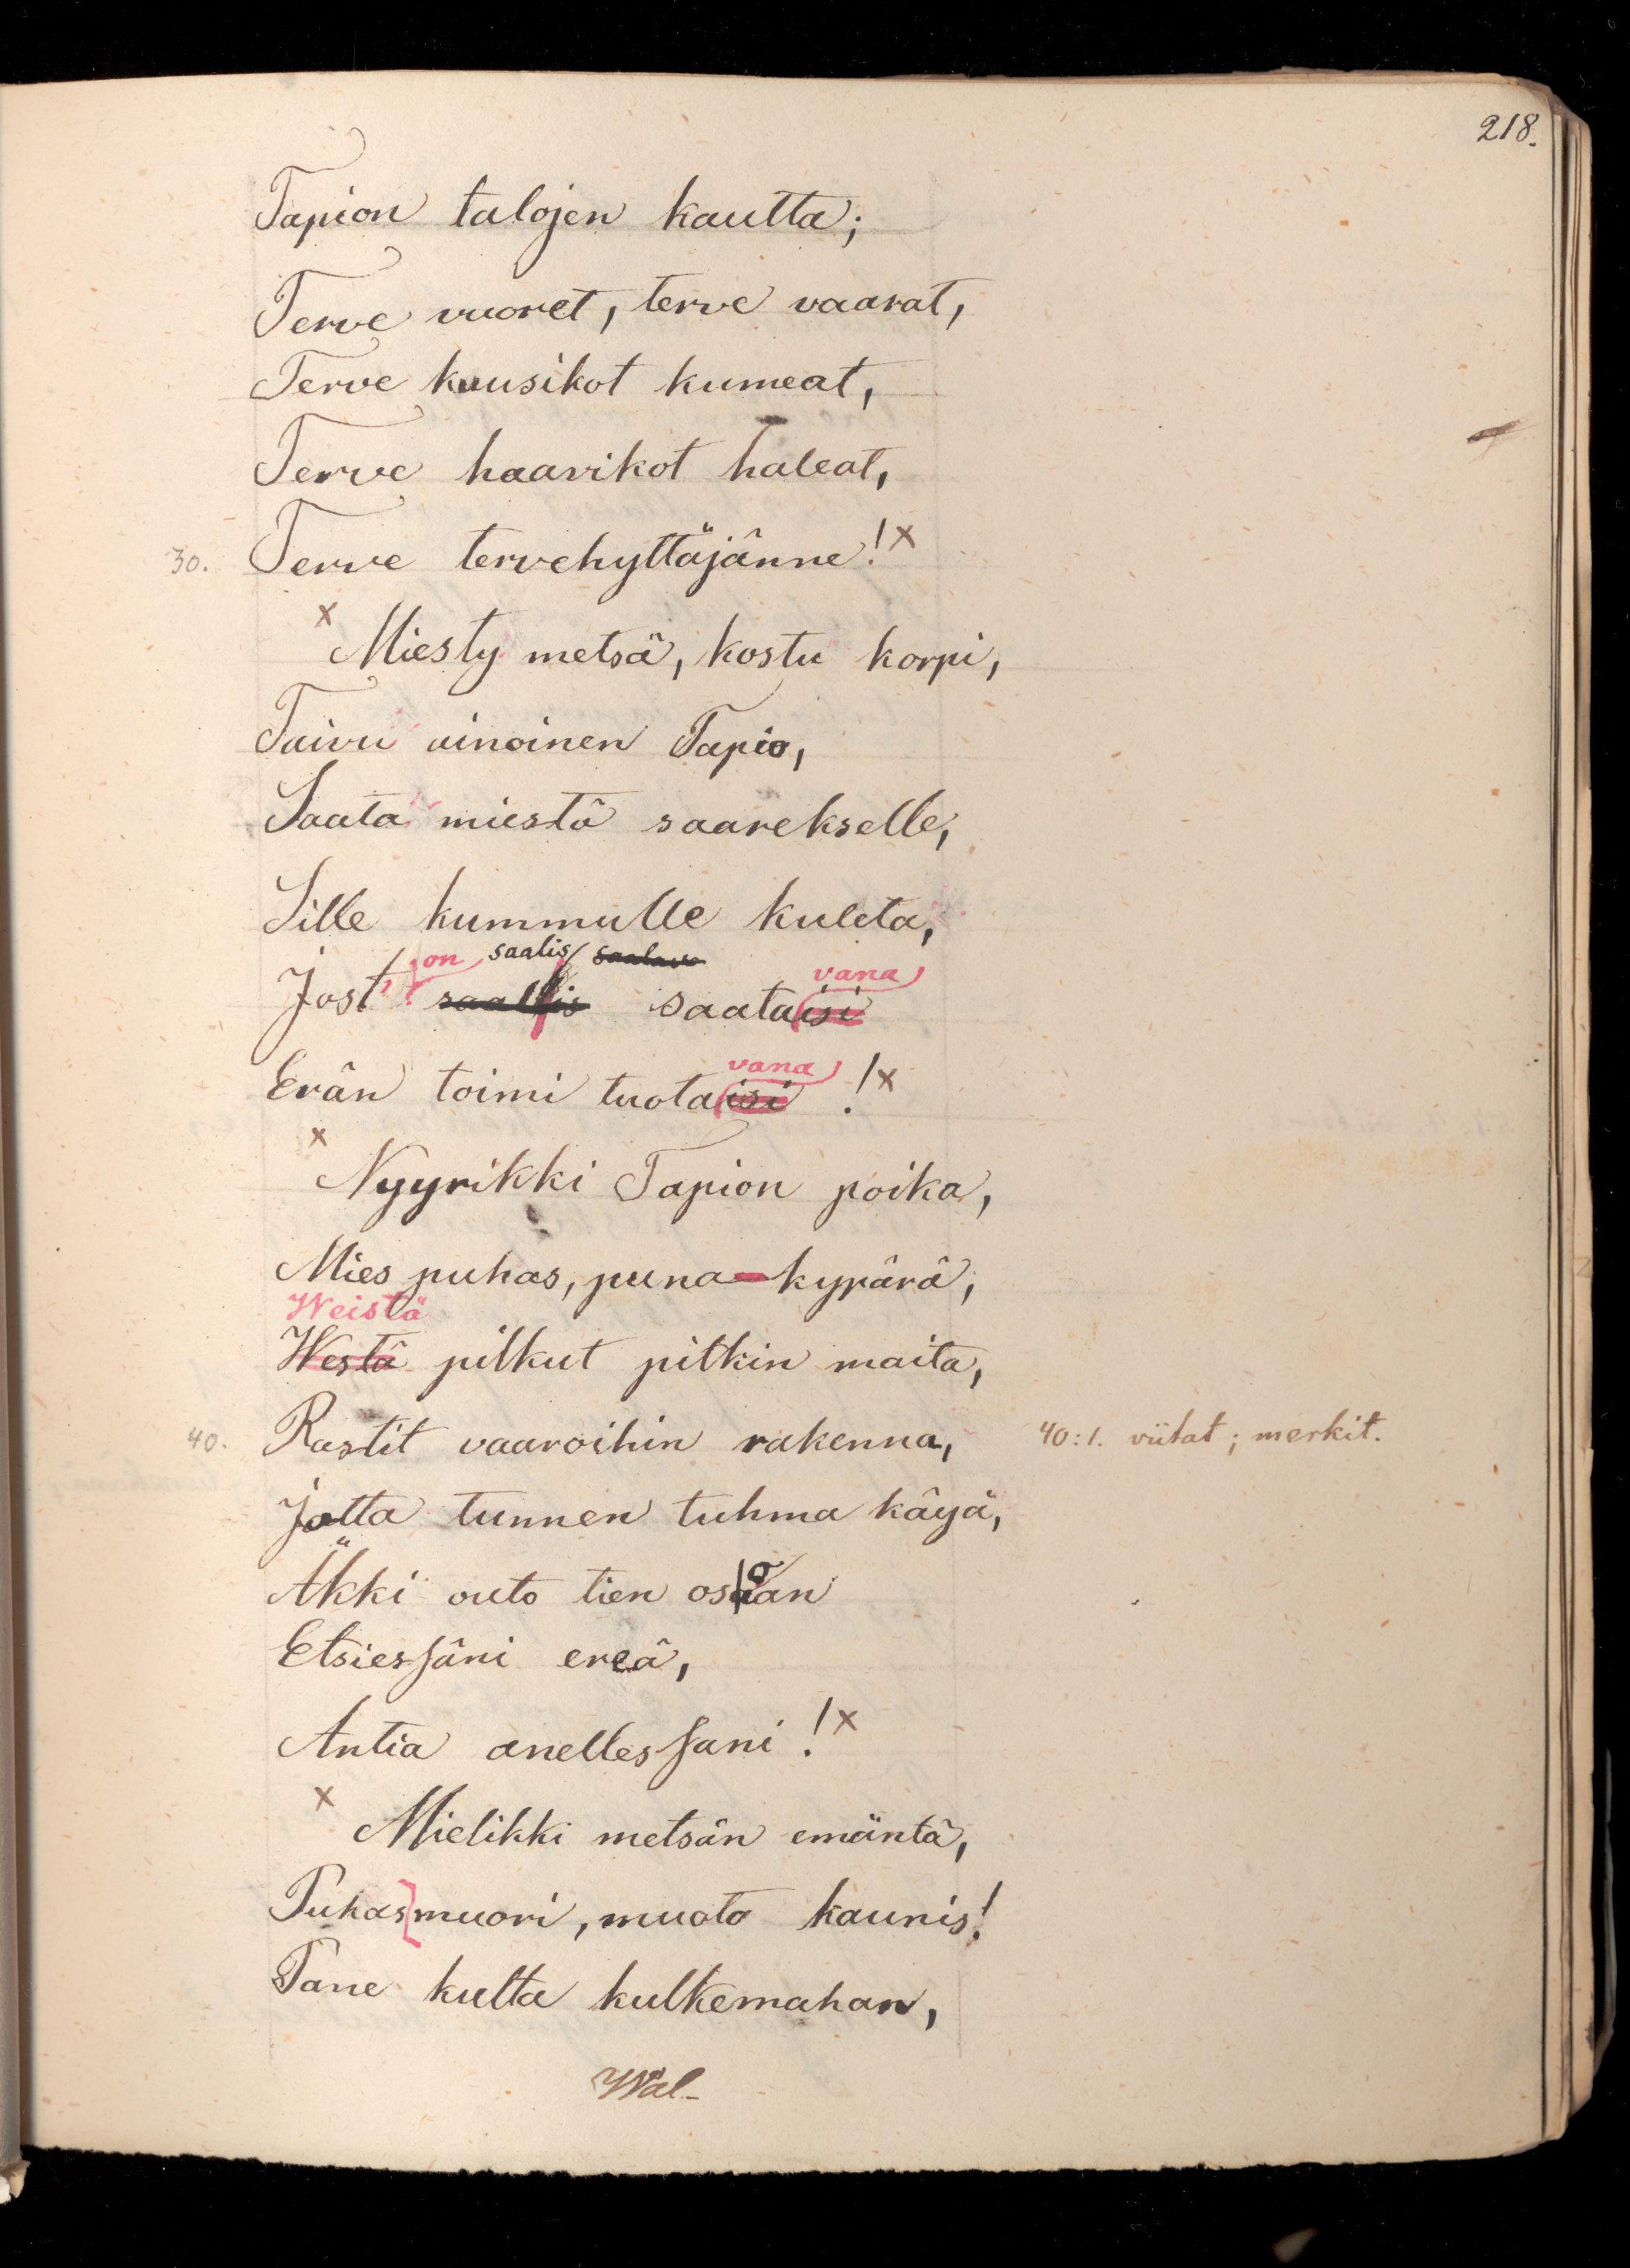 218.
Tapion talojen kautta;
Terve vuoret, terve vaarat,
Terve kuusikot kumeat,
Terve haavikot haleat,
30. Terve tervehyttäjänne!x
x Miesty metsä, kostu korpi,
Taivu ainoinen Tapio,
Saata miestä saarekselle,
Sille kummulle kuleta,
on saalis saalavo vana
Jost' saalis saataisi
vana
Erän toimi tuotaisi !x
x Nyyrikki Tapion poika,
Mies puhas, puna-kypärä,
Weistä
Westä pilkut pitkin maita,
40. Rastit vaaroihin rakenna, 40:1. viitat; merkit.
Jotta tunnen tuhma käyä,
Äkki outo tien osoan
Etsiessäni ereä,
Antia anellessani!x
x Mielikki metsän emäntä,
Puhas muori, muoto kaunis!
Pane kulta kulkemahan,
Wal-